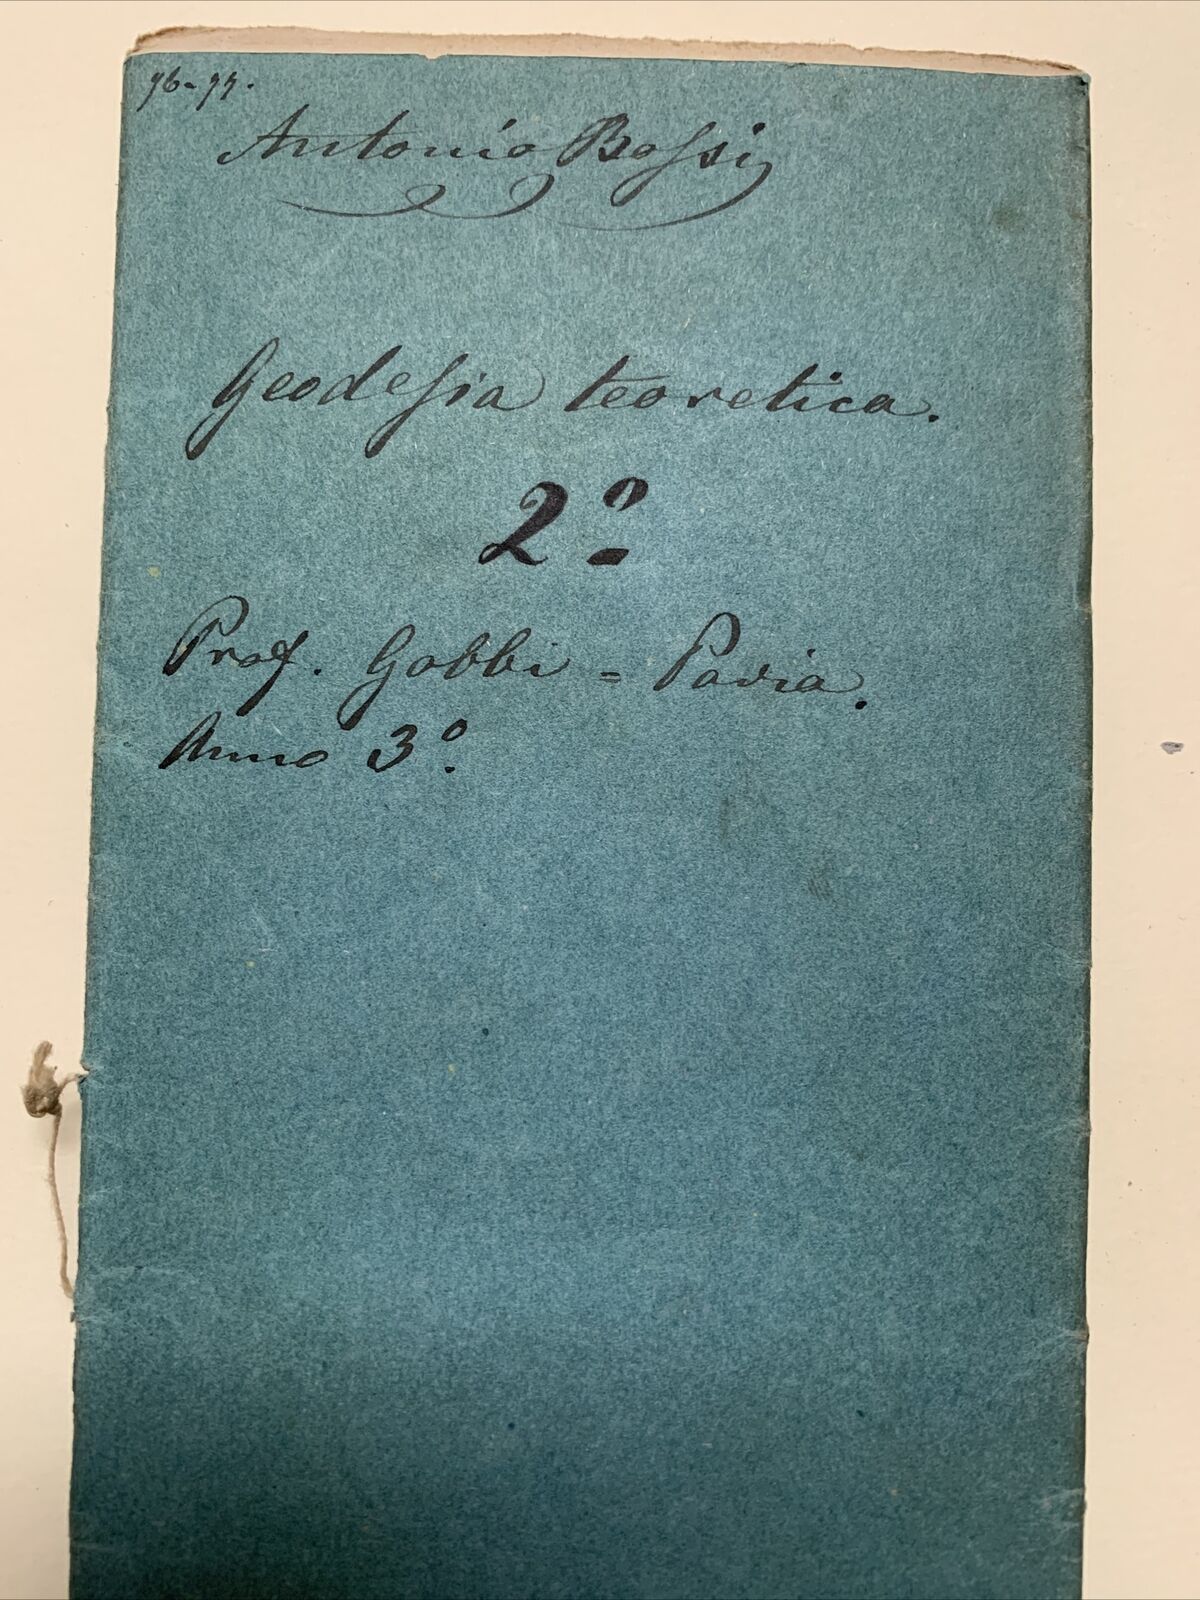 Antonio Bossi
Geodesia teoretica.
2º
Prof. Gobbi = Pavia.
Anno 3º.